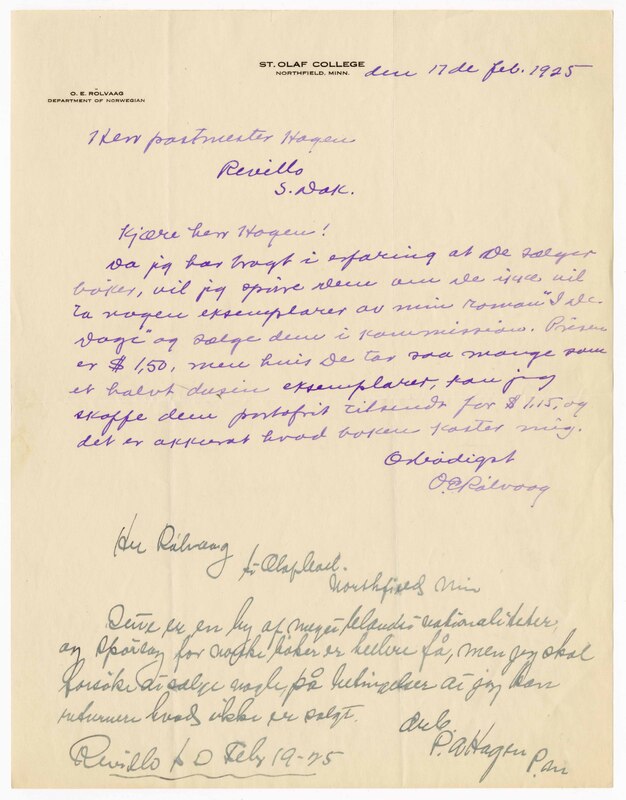 ST. OLAF COLLEGE
NORTHFIELD, MINN.
den 17de feb. 1925
O. E. RÖLVAAG
DEPARTMENT OF NORWEGIAN
Herr postmester Hagen
Revillo
S. Dak.
Kjære herr Hagen!
Da jeg har bragt i erfaring at De sælger
bøker, vil jeg spörre dem om De ikke vil
ta nogen eksemplarer av min roman "I De
Dage" og sælge dem i kommission. Prisen
er $1,50, men hvis De tar saa mange som
et halvt dusin eksemplarer, kan jeg
skaffe dem portofrit tilsendt for $1.15, og
det er akkurat hvad boken koster mig.
Örbödigst
O.E. Rölvaag
Herr Rölvaag
St Olaf
Northfield Min
Dette er en by af meget blandte nationaliteter,
og spörsög for norske bøker er heller få, men jeg skal
forsöke at sælge nogle, på betingelser at jeg kan
returnere hvad ikke er solgt.
P. A Hagen
P. m
Revillo S D Feby 19-25